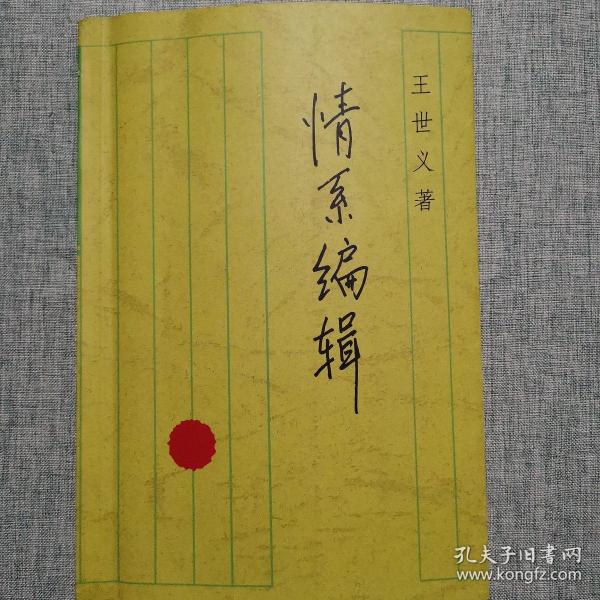 王世义著
情系编辑
孔夫子旧书网
www.kongfz.com